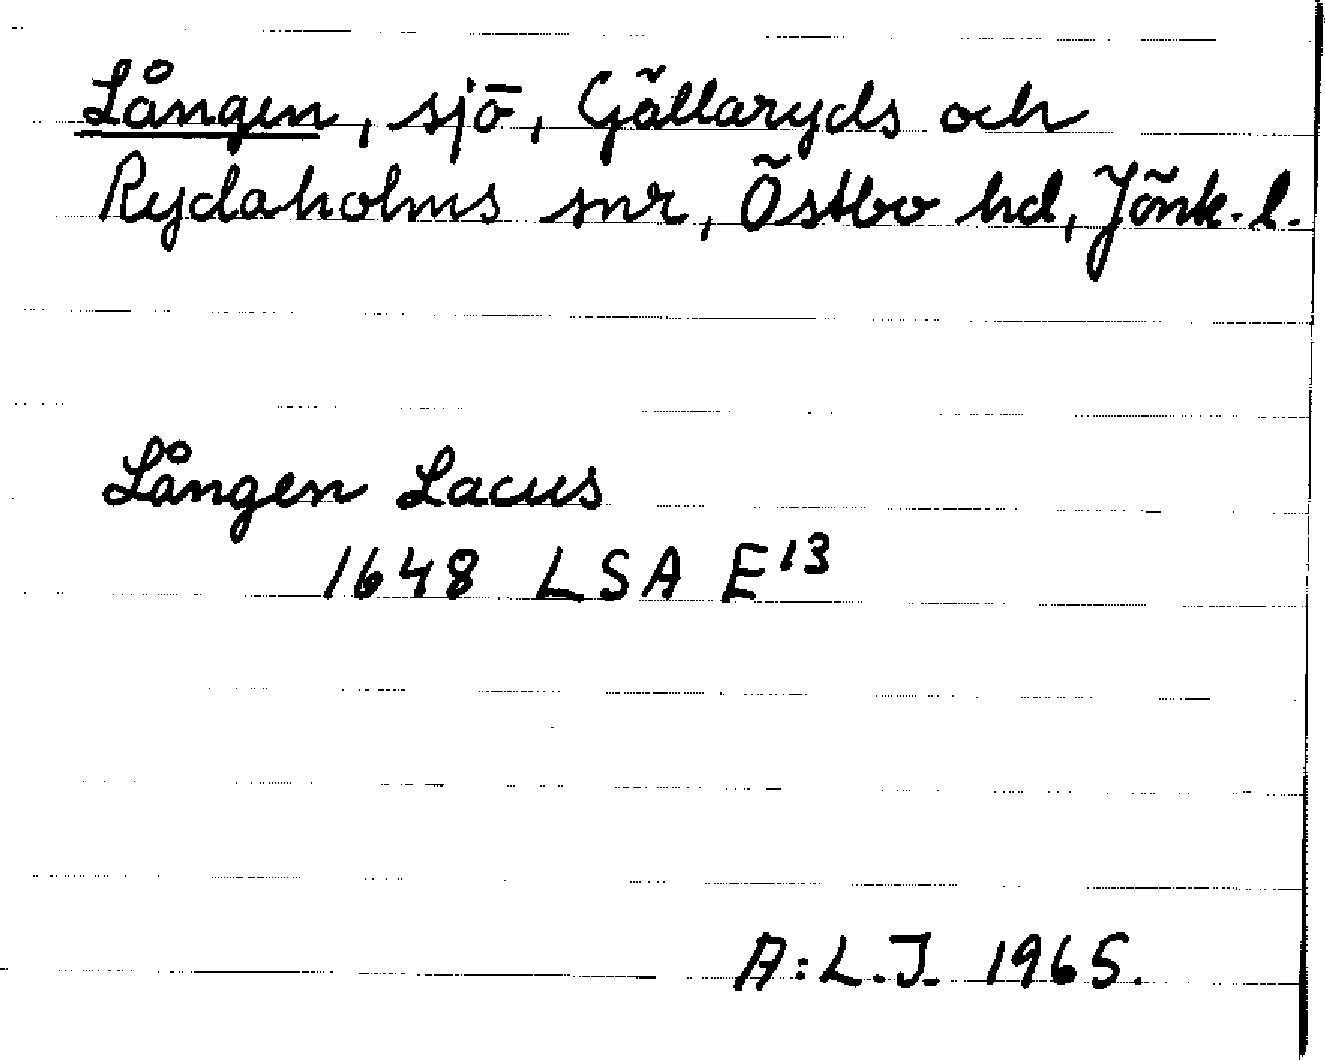 Lången, sjö, Gällaryds och
Rydaholms snr, Östbo hd, Jönk. l.
Lången Lacus
1648 LSA E¹³
A:L.J. 1965.